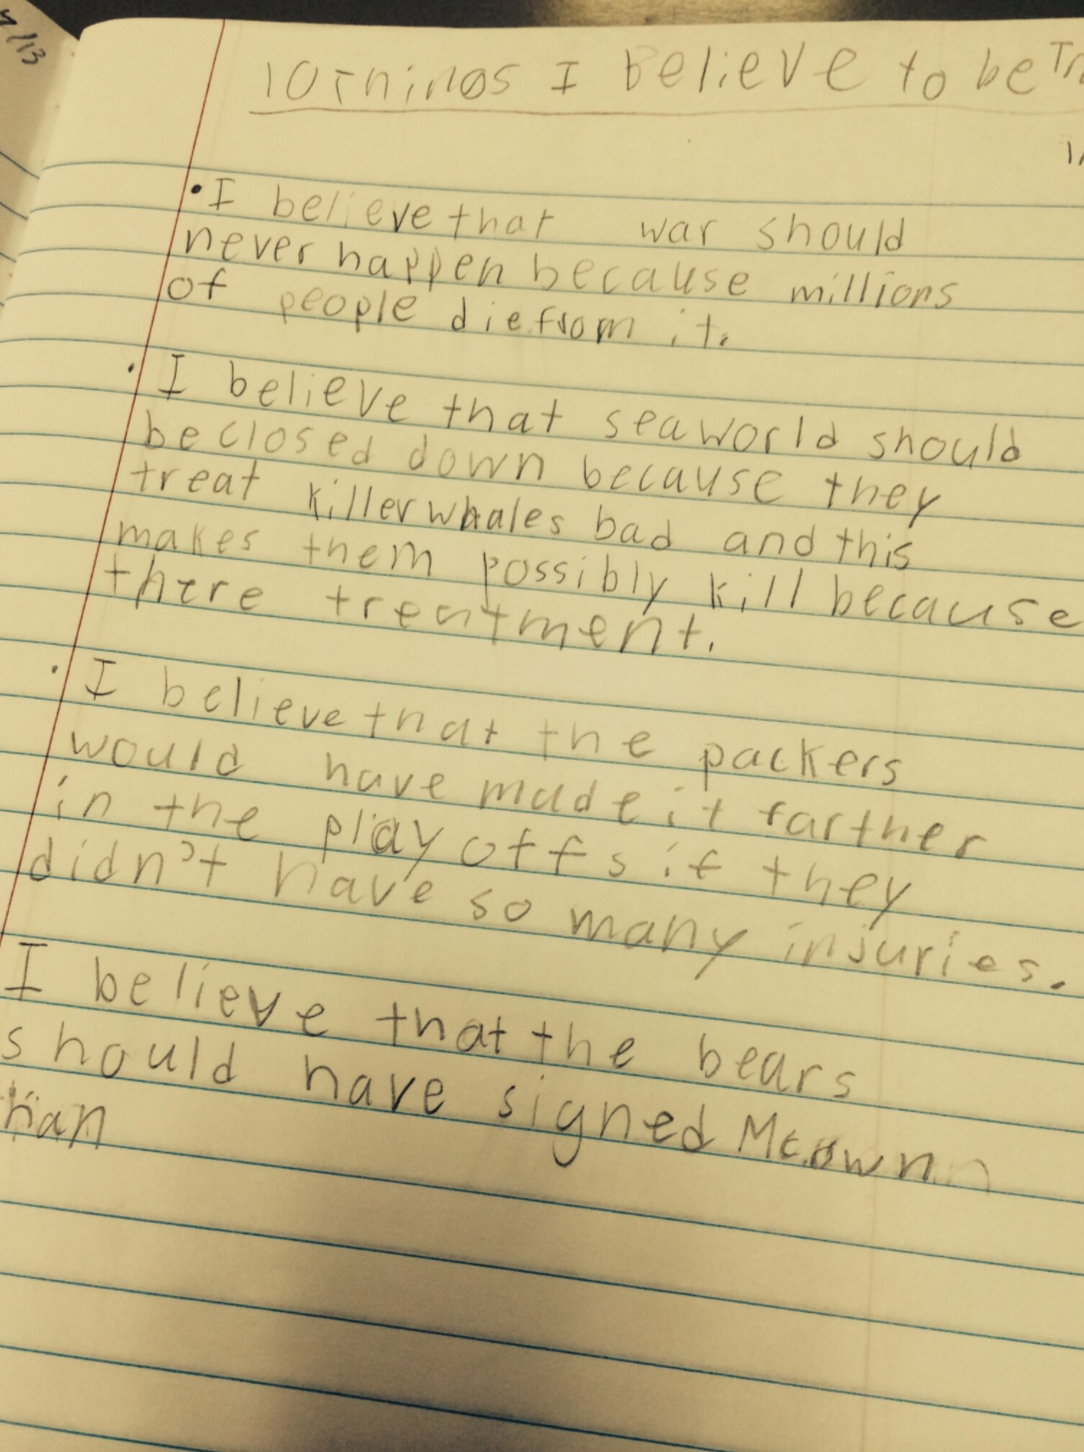 7/13
10 Things I Believe to be
• I believe that war should
never happen because millions
of people die from it.
• I believe that seaworld should
be closed down because they
treat killer whales bad and this
makes them possibly kill because
there treatment.
• I believe that the packers
would have made it farther
in the playoffs if they
didn't have so many injuries.
I believe that the bears
should have signed Mcown